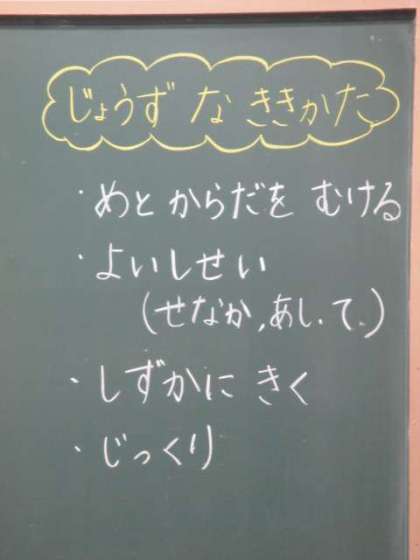 じょうず な ききかた
・めと からだを むける
・よいしせい
(せなか,あし.て.)
・しずかに きく
・じっくり